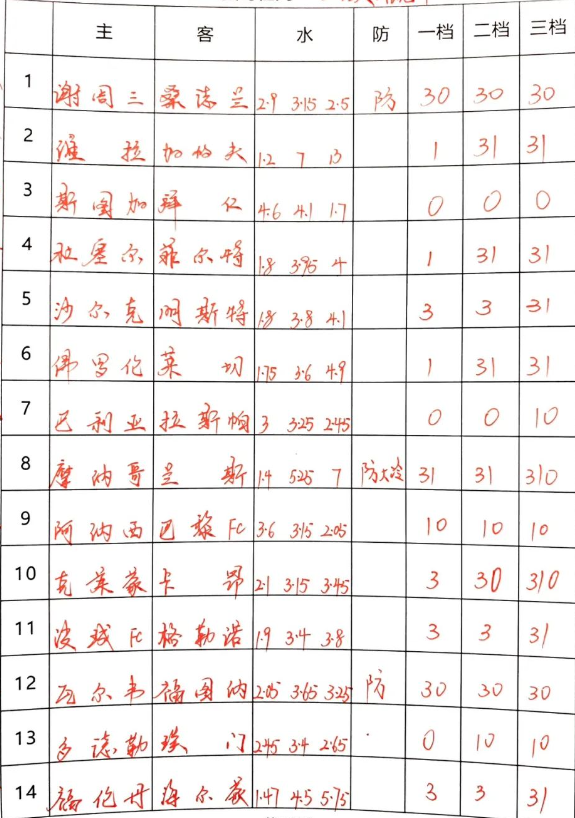 主 客 水 防 一档 二档 三档
1 谢周三 桑德兰 2.9 3.15 2.5 防 30 30 30
2 维拉 加的夫 1.2 7 13 1 31 31
3 斯图加 拜仁 4.6 4.1 1.7 0 0 0
4 杜塞尔 菲尔特 1.8 3.95 4 1 31 31
5 沙尔克 明斯特 1.8 3.8 4.1 3 3 31
6 佛罗伦 莱切 1.75 3.6 4.9 1 31 31
7 巴利亚 拉斯帕 3 3.25 2.45 0 0 10
8 摩纳哥 兰斯 1.4 5.25 7 防大冷 31 31 310
9 阿纳西 巴黎FC 3.6 3.15 2.05 10 10 10
10 克莱蒙 卡昂 2.1 3.15 3.45 3 30 310
11 波城FC 格勒诺 1.9 3.4 3.8 3 3 31
12 瓦尔韦 福图纳 2.05 3.65 3.25 防 30 30 30
13 多德勒 埃门 2.45 3.4 2.65 0 10 10
14 福伦丹 海尔蒙 1.47 4.5 5.75 3 3 31